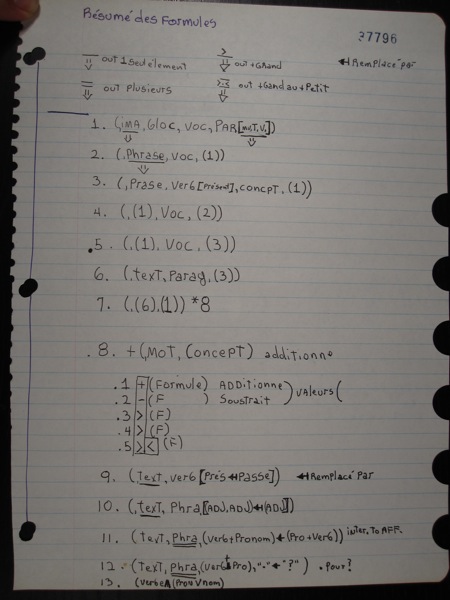 Résumé des Formules
37796
⇓ out 1 Seul élement
> ⇓ out + Grand
↤ Remplacé par
= ⇓ out Plusieurs
>< ⇓ out + Gand au + Petit
1. (,iMA, Gloc, VOC, PAR[MoT,V.])
2. (.Phrase, VOC, (1))
3. (, Prase, Ver6[Présent], concpT, (1))
4. (.(1), Voc, (2))
.5. (.(1). Voc, (3))
6. (.texT, Parag, (3))
7. (.(6).(1)) *8
.8. +(,MoT, Concept) additionne
.1 + (Formule) ADDitionne
.2 - (F ) Soustrait ) VAleurs (
.3 > (F)
.4 > (F)
.5 >< (F)
9. (.Text, ver6 [Prés ↤ Passe]) ↤ Remplacé Par
10. (,text, Phra[[ADJ,ADJ]↤(ADJ)])
11. (Text, Phra,(ver6+Pronom)←(Pro+Ver6)) inter. To AFF.
12. (TexT, Phra,(ver6+Pro),"."←"?") . Pour?
13. (verbe (ProuVnom)